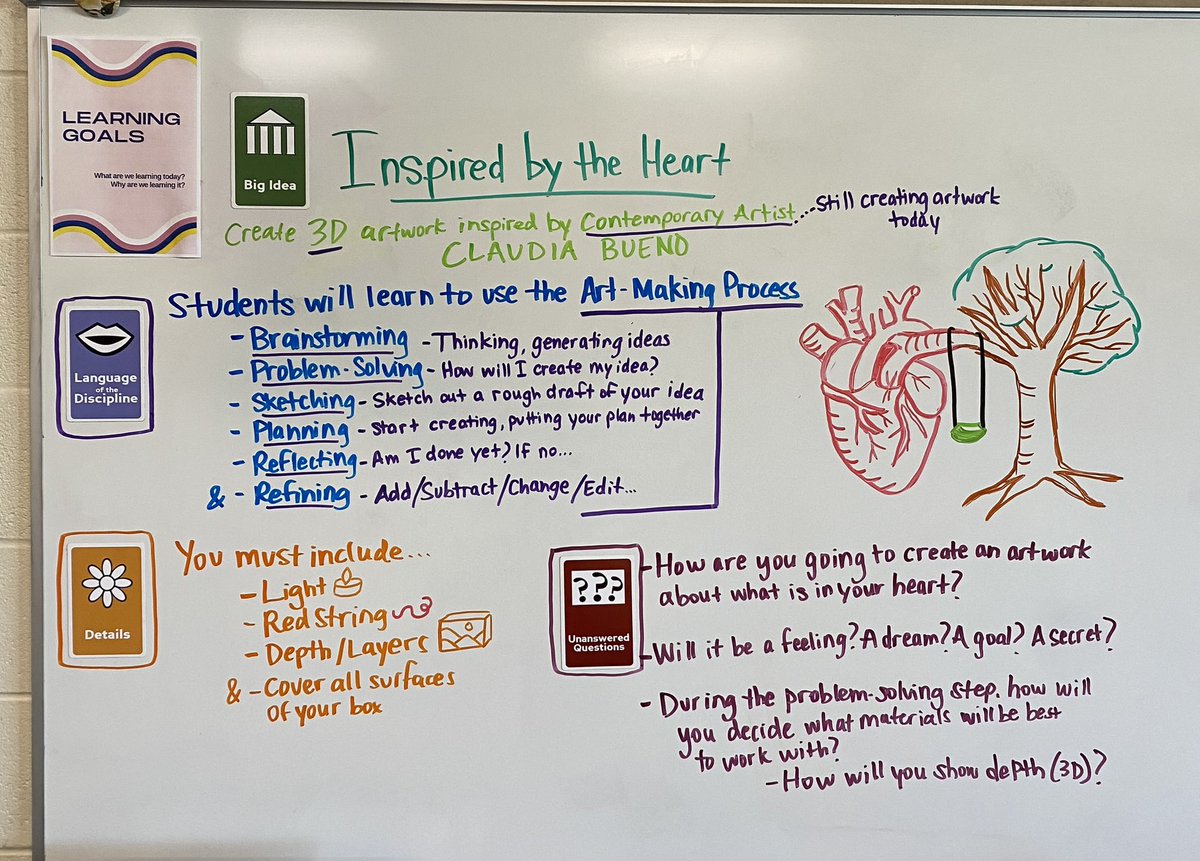 LEARNING
GOALS
What are we learning today?
Why are we learning it?
Big Idea
Inspired by the Heart
Create 3D artwork inspired by Contemporary Artist...Still creating artwork
today
CLAUDIA BUENO
Language
of the
Discipline
Students will learn to use the Art-Making Process
- Brainstorming - Thinking, generating ideas
- Problem-Solving - How will I create my idea?
- Sketching - Sketch out a rough draft of your idea
- Planning - Start creating, putting your plan together
- Reflecting - Am I done yet? If no...
& - Refining - Add/Subtract/Change/Edit...
Details
You must include...
- Light
- Red String
- Depth/Layers
& - Cover all surfaces
of your box
???
Unanswered
Questions
- How are you going to create an artwork
about what is in your heart?
- Will it be a feeling? A dream? A goal? A secret?
- During the problem-solving step. how will
you decide what materials will be best
to work with?
- How will you show depth (3D)?